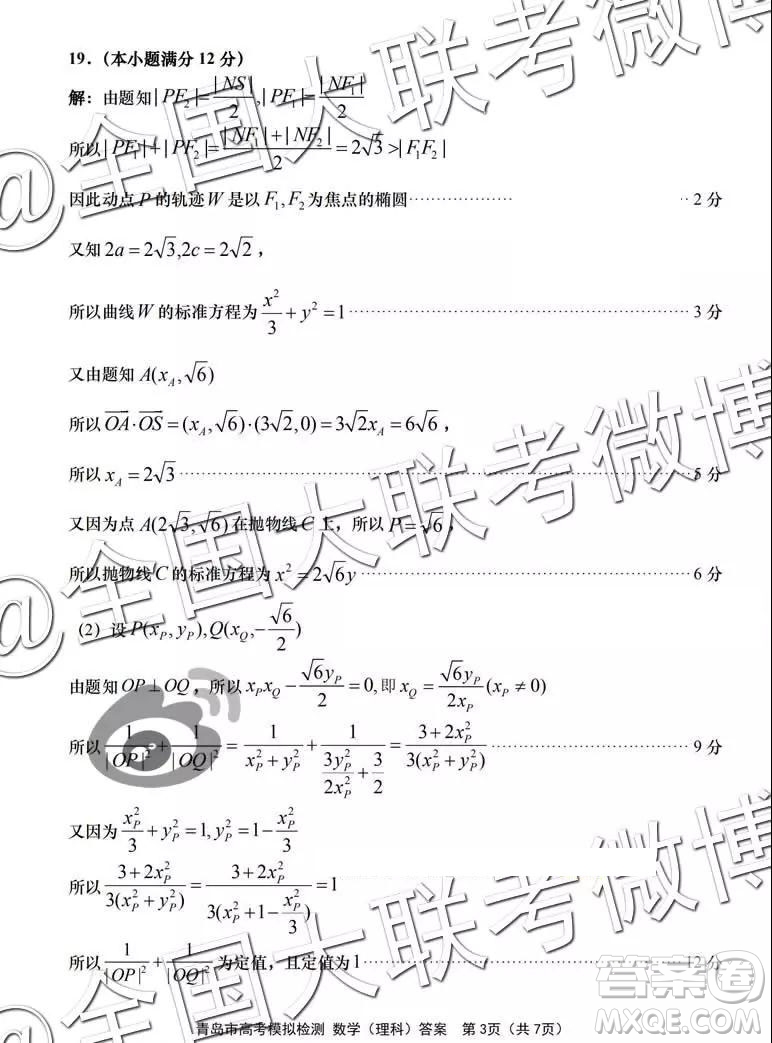 19．（本小题满分 12 分）
解：由题知|PF₂|=|NS|/2,|PF₁|=|NF₁|/2
所以|PF₁|+|PF₂|=(|NF₁|+|NF₂|)/2=2√3>|F₁F₂|
因此动点 P 的轨迹 W 是以 F₁,F₂ 为焦点的椭圆 ⋯⋯ 2 分
又知 2a=2√3,2c=2√2，
所以曲线 W 的标准方程为 x²/3+y²=1 ⋯⋯ 3 分
又由题知 A(x_A,√6)
所以 OA·OS=(x_A,√6)·(3√2,0)=3√2x_A=6√6，
所以 x_A=2√3 ⋯⋯ 5 分
又因为点 A(2√3,√6) 在抛物线 C 上，所以 P=√6，
所以抛物线 C 的标准方程为 x²=2√6y ⋯⋯ 6 分
（2）设 P(x_P,y_P),Q(x_Q,-√6/2)
由题知 OP⊥OQ，所以 x_Px_Q-√6y_P/2=0,即 x_Q=√6y_P/2x_P(x_P≠0)
所以 1/|OP|²+1/|OQ|²=1/(x_P²+y_P²)+1/(3y_P²/2x_P²+3/2)=(3+2x_P²)/3(x_P²+y_P²) ⋯⋯ 9 分
又因为 x_P²/3+y_P²=1,y_P²=1-x_P²/3
所以 (3+2x_P²)/3(x_P²+y_P²)=(3+2x_P²)/3(x_P²+1-x_P²/3)=1
所以 1/|OP|²+1/|OQ|² 为定值，且定值为1 ⋯⋯ 12 分
青岛市高考模拟检测 数学（理科）答案 第 3页（共 7页）
@全国大联考微博
@全国大联考微博
答案圈